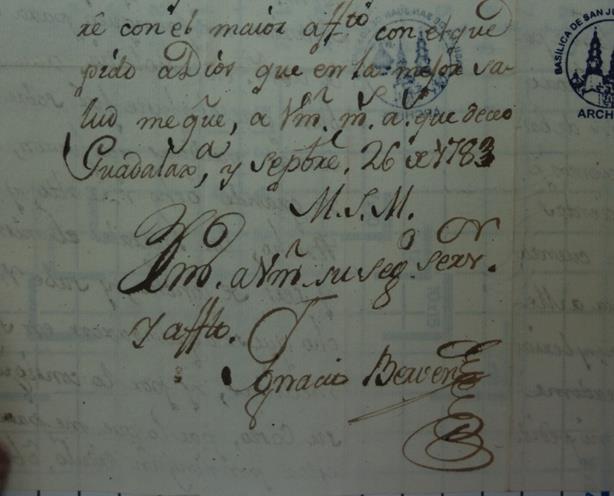 ré con el maior affto con el que
pido a Dios que en la mejor sa-
lud me gue, a Vm. m. a. que deceo
Guadalaxa, y Sepbre. 26 de 1783
M. S. M.
a Vm. su seg. serv.
Y affto.
Ignacio
BASILICA DE SAN JU
ARCH